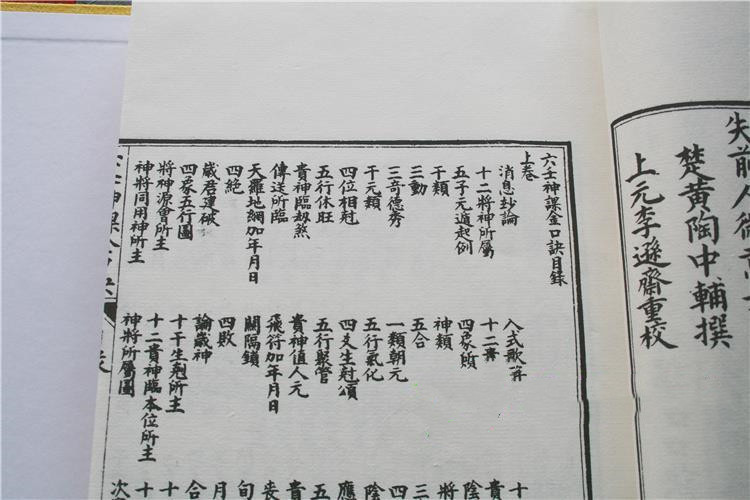 楚黄陶中輔撰
上元李遜齋重校
六壬神課金口訣目録
上卷
消息玅論 入式歌 十
十二將神所屬 十二 貴
五子元遁起例 四象 陰
干類 神類 將
三動 五合 三
三奇德秀 一類朝元 四
干元類 五行氣化 陰
四位相尅 四爻生尅頌 應
五行休旺 五行聚管 五
貴神臨劫煞 貴神值人元 貴
傳送所臨 飛符加年月日 喪
天羅地網加年月日 關隔鎖 旬
四絕 四敗 月
歲君運破 論歲神 合
四象五行圖 十干生剋所主 十
將神源會所主 十二貴神臨本位所主 十
神將同用神所主 神將所屬圖 次